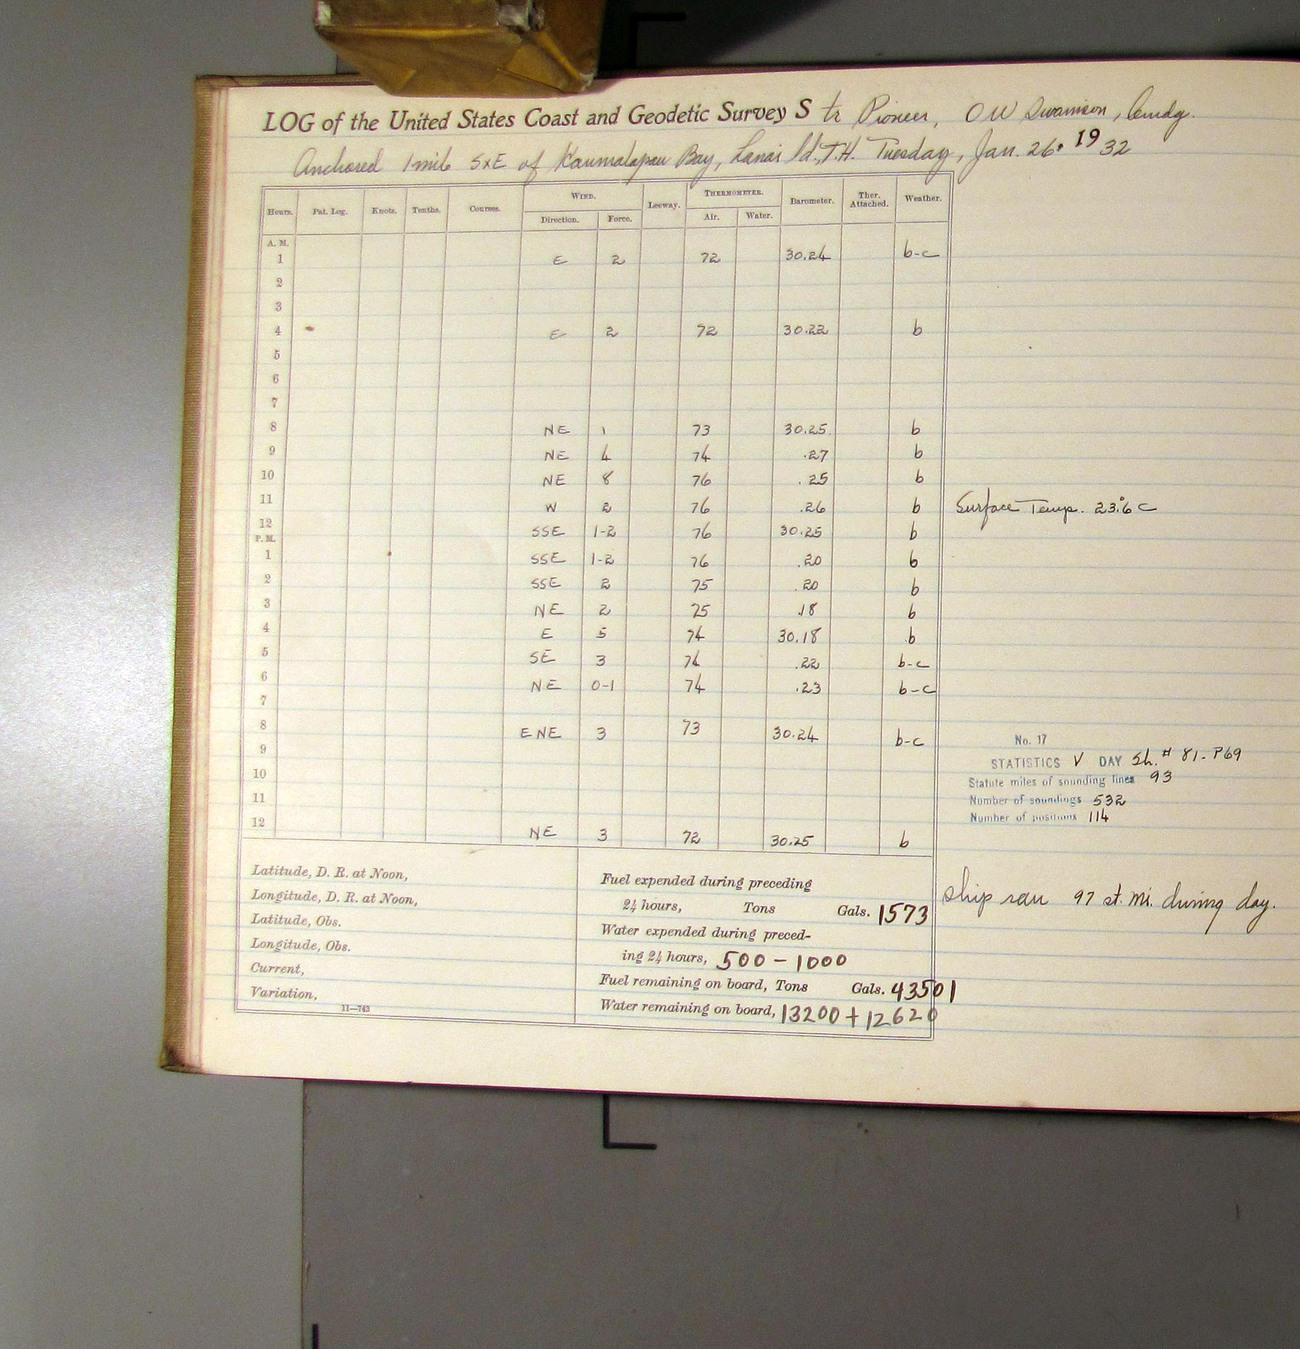 LOG of the United States Coast and Geodetic Survey Str Pioneer, O W Swainson, Comdg.
Anchored 1 mile SxE of Kaumalapau Bay, Lanai Id., T.H. Tuesday, Jan. 26, 1932
Hours. Pat. Log. Knots. Tenths. Courses. WIND. Leeway. THERMOMETER. Barometer. Ther. Attached. Weather.
Direction. Force. Air. Water.
A. M.
1 E 2 72 30.24 b-c
2
3
4 E 2 72 30.22 b
5
6
7
8 NE 1 73 30.25 b
9 NE 4 74 .27 b
10 NE 8 76 .25 b
11 W 2 76 .26 b Surface Temp. 23.6° C
12 SSE 1-2 76 30.25 b
P. M.
1 SSE 1-2 76 .20 b
2 SSE 2 75 .20 b
3 NE 2 75 .18 b
4 E 5 74 30.18 b
5 SE 3 74 .22 b-c
6 NE 0-1 74 .23 b-c
7
8 ENE 3 73 30.24 b-c
9
10
11
12 NE 3 72 30.25 b
No. 17
STATISTICS V DAY Sh. # 81-P69
Statute miles of sounding lines 93
Number of soundings 532
Number of positions 114
Latitude, D. R. at Noon,
Longitude, D. R. at Noon,
Latitude, Obs.
Longitude, Obs.
Current,
Variation,
11—763
Fuel expended during preceding
24 hours, Tons Gals. 1573
Water expended during preced-
ing 24 hours, 500 - 1000
Fuel remaining on board, Tons Gals. 43501
Water remaining on board, 13200 + 12620
Ship ran 97 st. mi. during day.